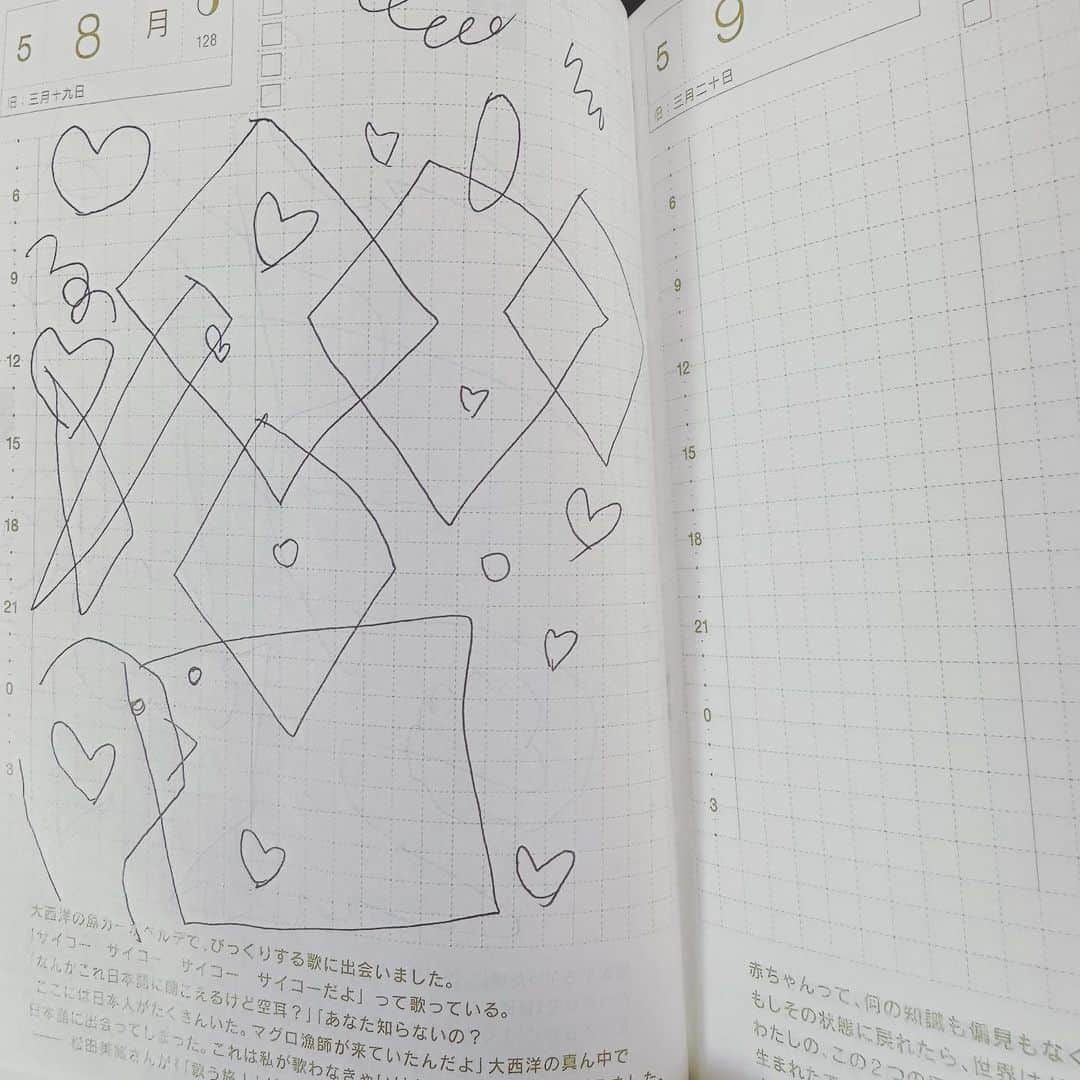 5 8 月
128
旧:三月十九日
6
9
12
15
18
21
0
3
大西洋の島カーボベルデで、びっくりする歌に出会いました。
「サイコー サイコー サイコー サイコーだよ」って歌っている。
「なんかこれ日本語に聞こえるけど空耳?」「あなた知らないの?
ここには日本人がたくさんいた。マグロ漁師が来ていたんだよ」大西洋の真ん中で
日本語に出会ってしまった。これは私が歌わなきゃ
5 9
旧:三月二十日
6
9
12
15
18
21
0
3
赤ちゃんって、何の知識も偏見もなく
もしその状態に戻れたら、世界は
わたしの、この2つの
生まれた